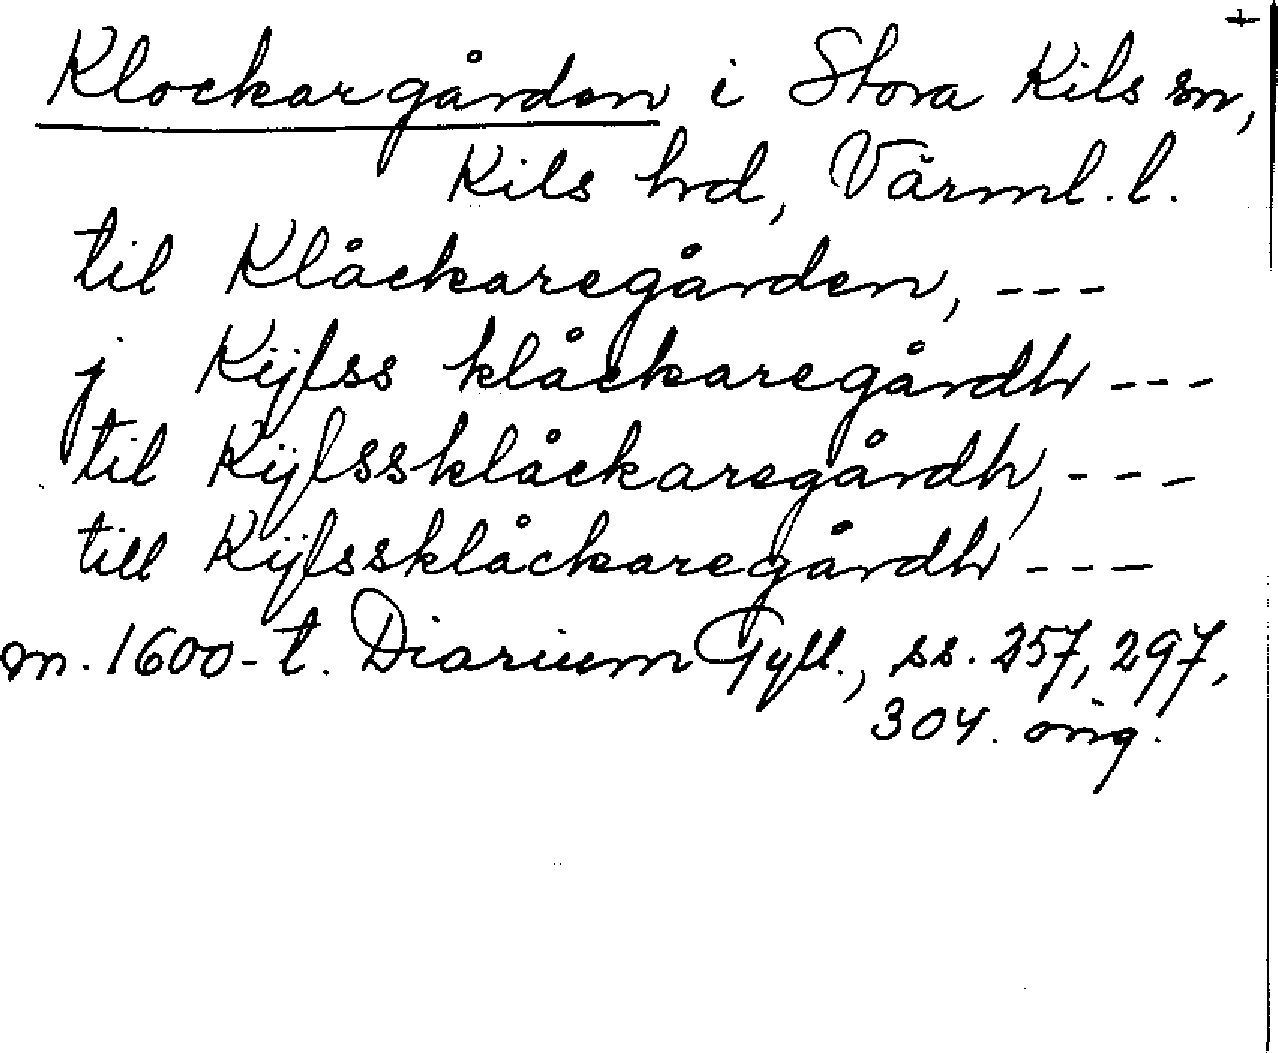 +
Klockargården i Stora Kils sn,
Kils hd, Värml. l.
til Klåckaregården, ---
j Kijlss klåckaregårdh ---
til Kijlssklåckaregårdh, ---
till Kijlssklåckaregårdh ---
m. 1600-t. Diarium Gyll., ss. 257, 297,
304. orig.